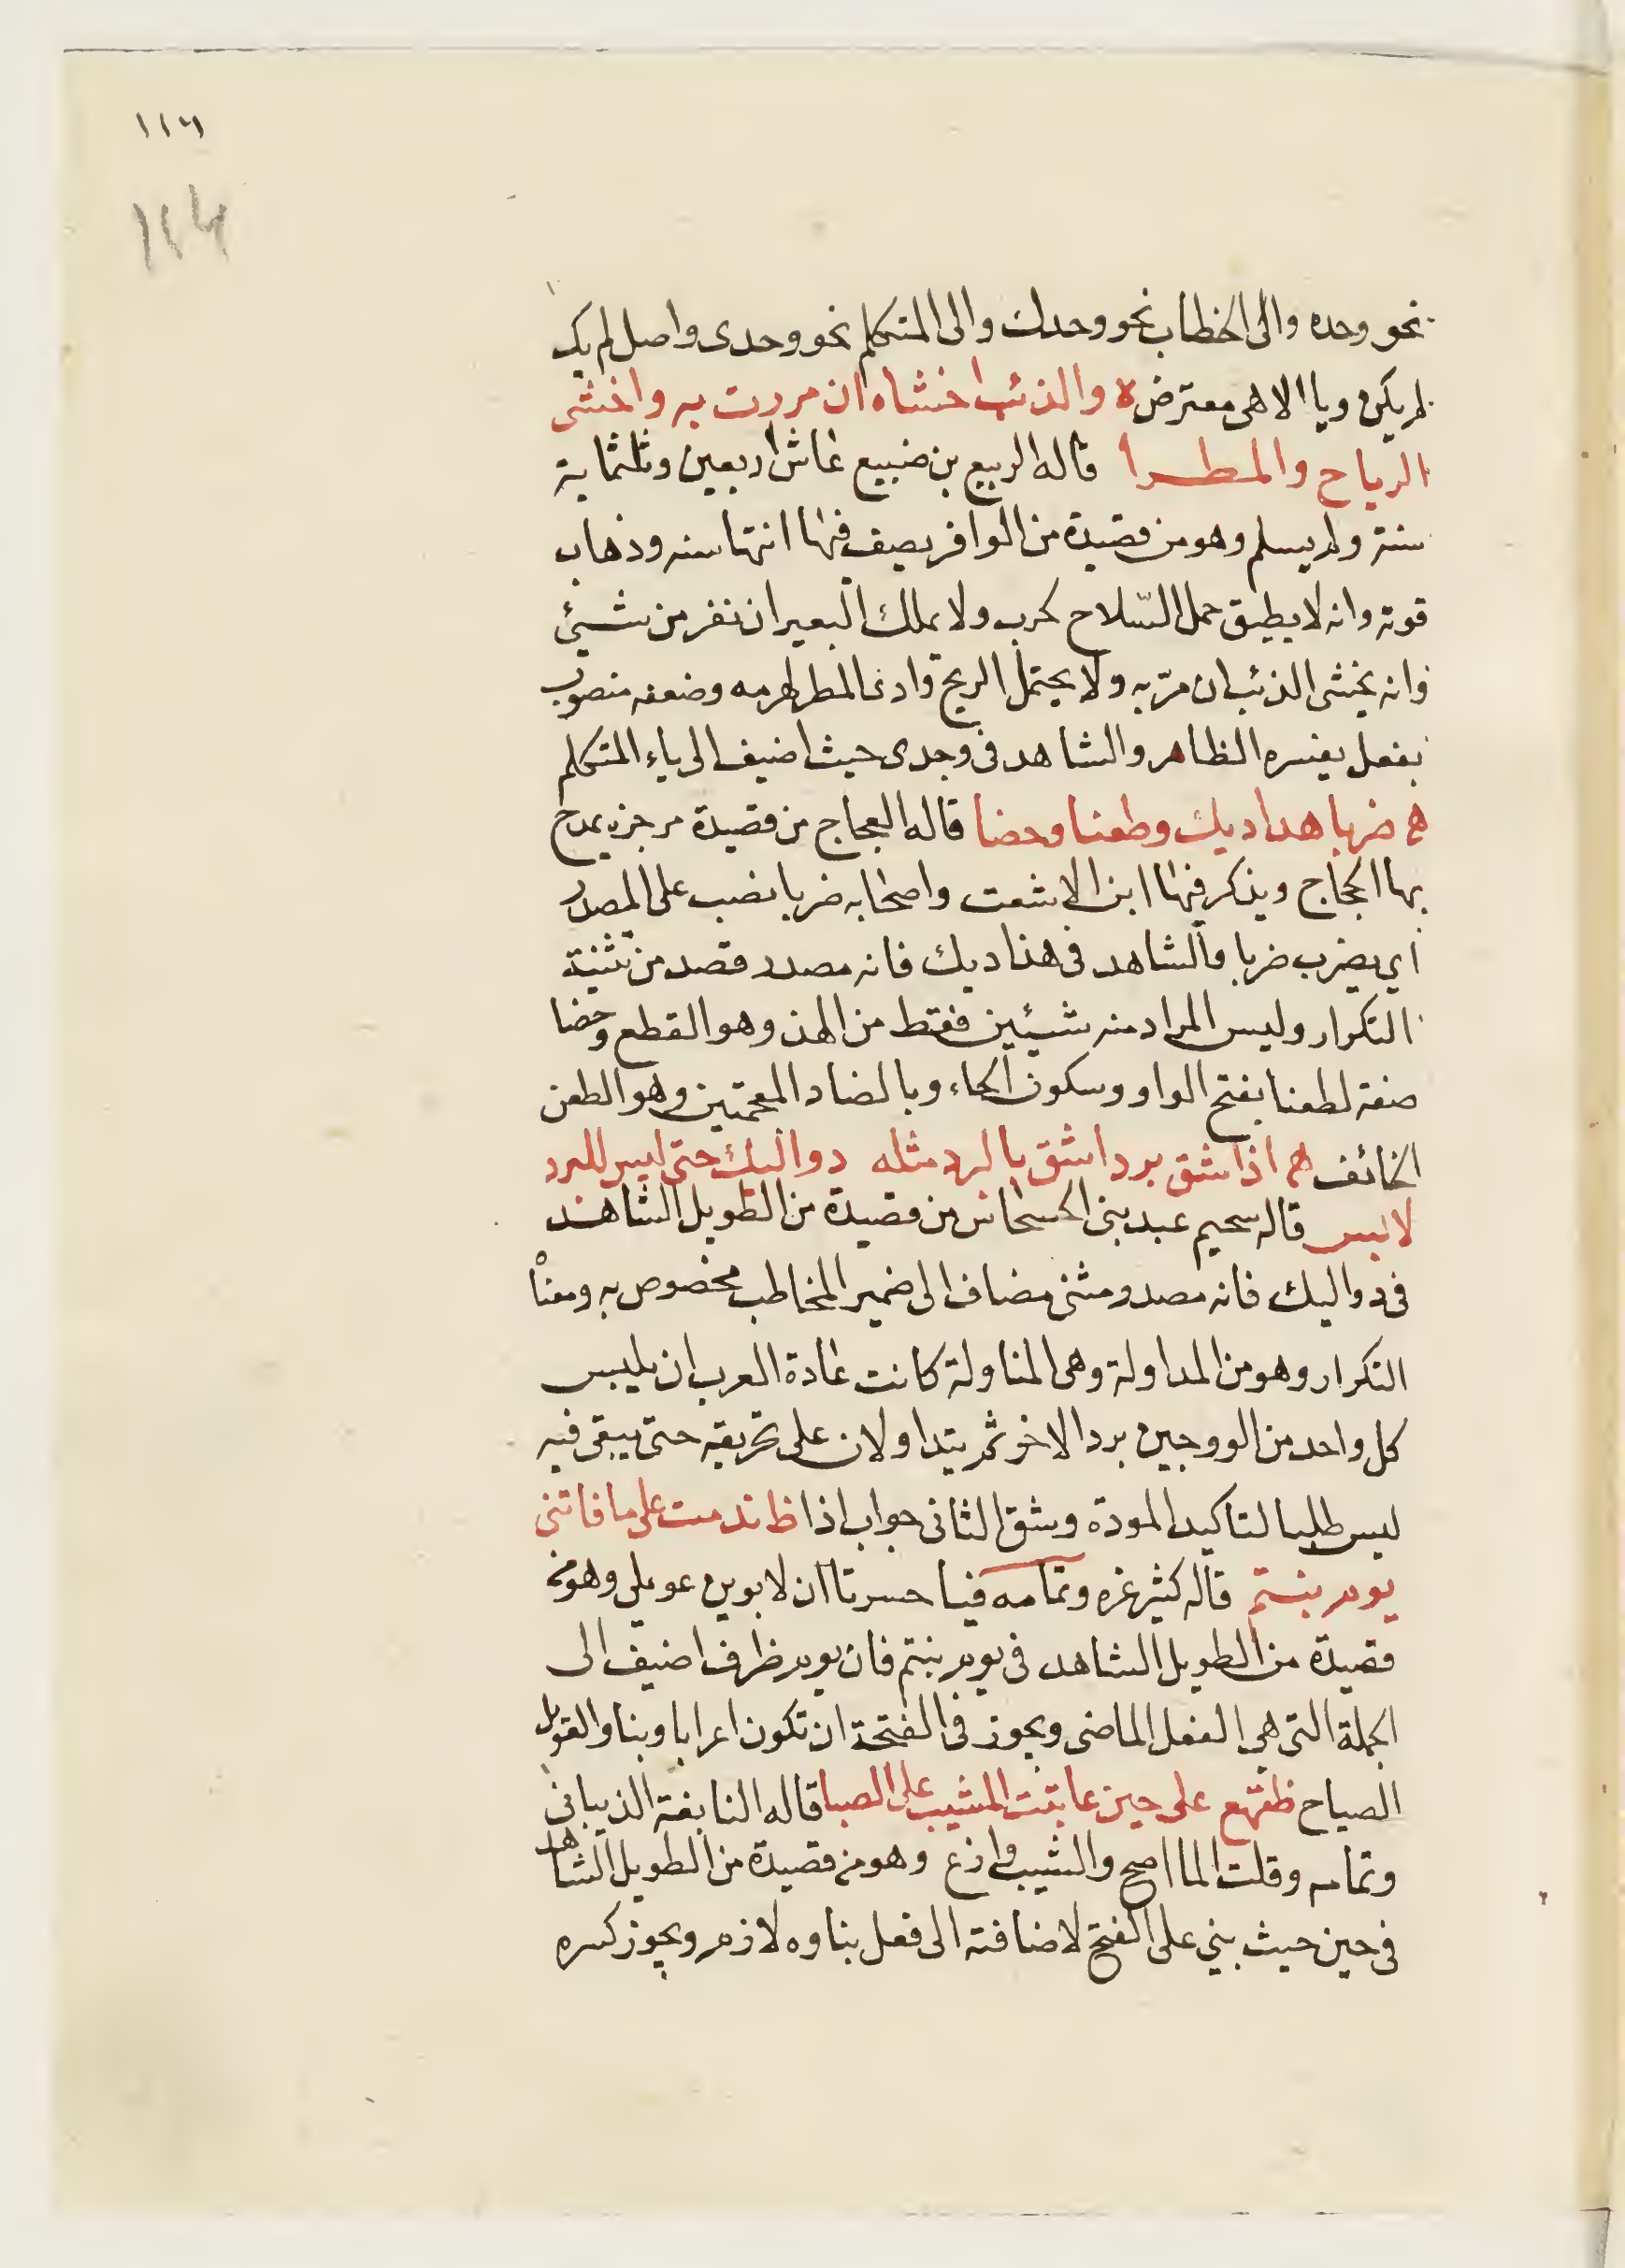 ١١٦
١١٤
نحو وحده والى الخطاب نحو وحدك والى المتكلم نحو وحدى واصل لم يك
لم يكن ويا الاهى معترضة والذئب اخشاه ان مررت به واخشى
الرياح والمطرا قاله الربيع بن ضبيع عاش اربعين وثلثماية
سنة ولم يسلم وهو من قصيدة من الوافر يصف فيها انتها سنه وذهاب
قوته وانه لا يطيق حمل السّلاح لحرب ولا يملك البعير ان نفر من شيئ
وانه يخشى الذئب ان مرّ به ولا يحتمل الريح واذى المطر لهرمه وضعفه منصوب
بفعل يفسره الظاهر والشاهد فى وحدى حيث اضيف الى ياء المتكلم
هم ضربا هذاديك وطعنا وخضا قاله العجاج من قصيدة مرجزه يمدح
بها الحجاج ويذكر فيها ابن الاشعت واصحابه ضربا نصب على المصدر
اي يضرب ضربا والشاهد فى هذاديك فانه مصدر قصد من تثنية
التكرار وليس المراد منه شيئين فقط من الهذ وهو القطع وخضا
صفة لطعنا بفتح الواو وسكون الخاء وبالضاد المعجمتين وهو الطعن
الخائف هم اذا شق برد اشق بالبرد مثله دواليك حتى ليس للبرد
لابس قاله سحيم عبد بنى الحسحاس من قصيدة من الطويل الشاهد
فى دواليك فانه مصدر مثنى مضاف الى ضمير المخاطب مخصوص به ومعناه
التكرار وهو من المداولة وهى المناولة كانت عادة العرب ان يلبس
كل واحد من الزوجين برد الاخر ثم يتداولان على تحريقه حتى يبقى فيه
لبس طلبا لتاكيد المودة وشق الثانى جواب اذا ظ ندمت على ما فاتنى
يوم بنتم قاله كثير غزه وتمامه فيا حسرتا ان لا يرين عويلى وهو من
قصيدة من الطويل الشاهد فى يوم بنتم فان يوم ظرف اضيف الى
الجملة التى هي الفعل الماضى ويجوز فى الفتحة ان تكون اعرابا وبنا والعويل
الصياح ظقهع على حين عاتبت المشيب على الصبا قاله النابغة الذيبانى
وتمامه وقلت الما اصح والشيب وازع وهو من قصيدة من الطويل الشاهد
فى حين حيث بني على الفتح لاضافته الى فعل بناوه لازم ويجوز كسره